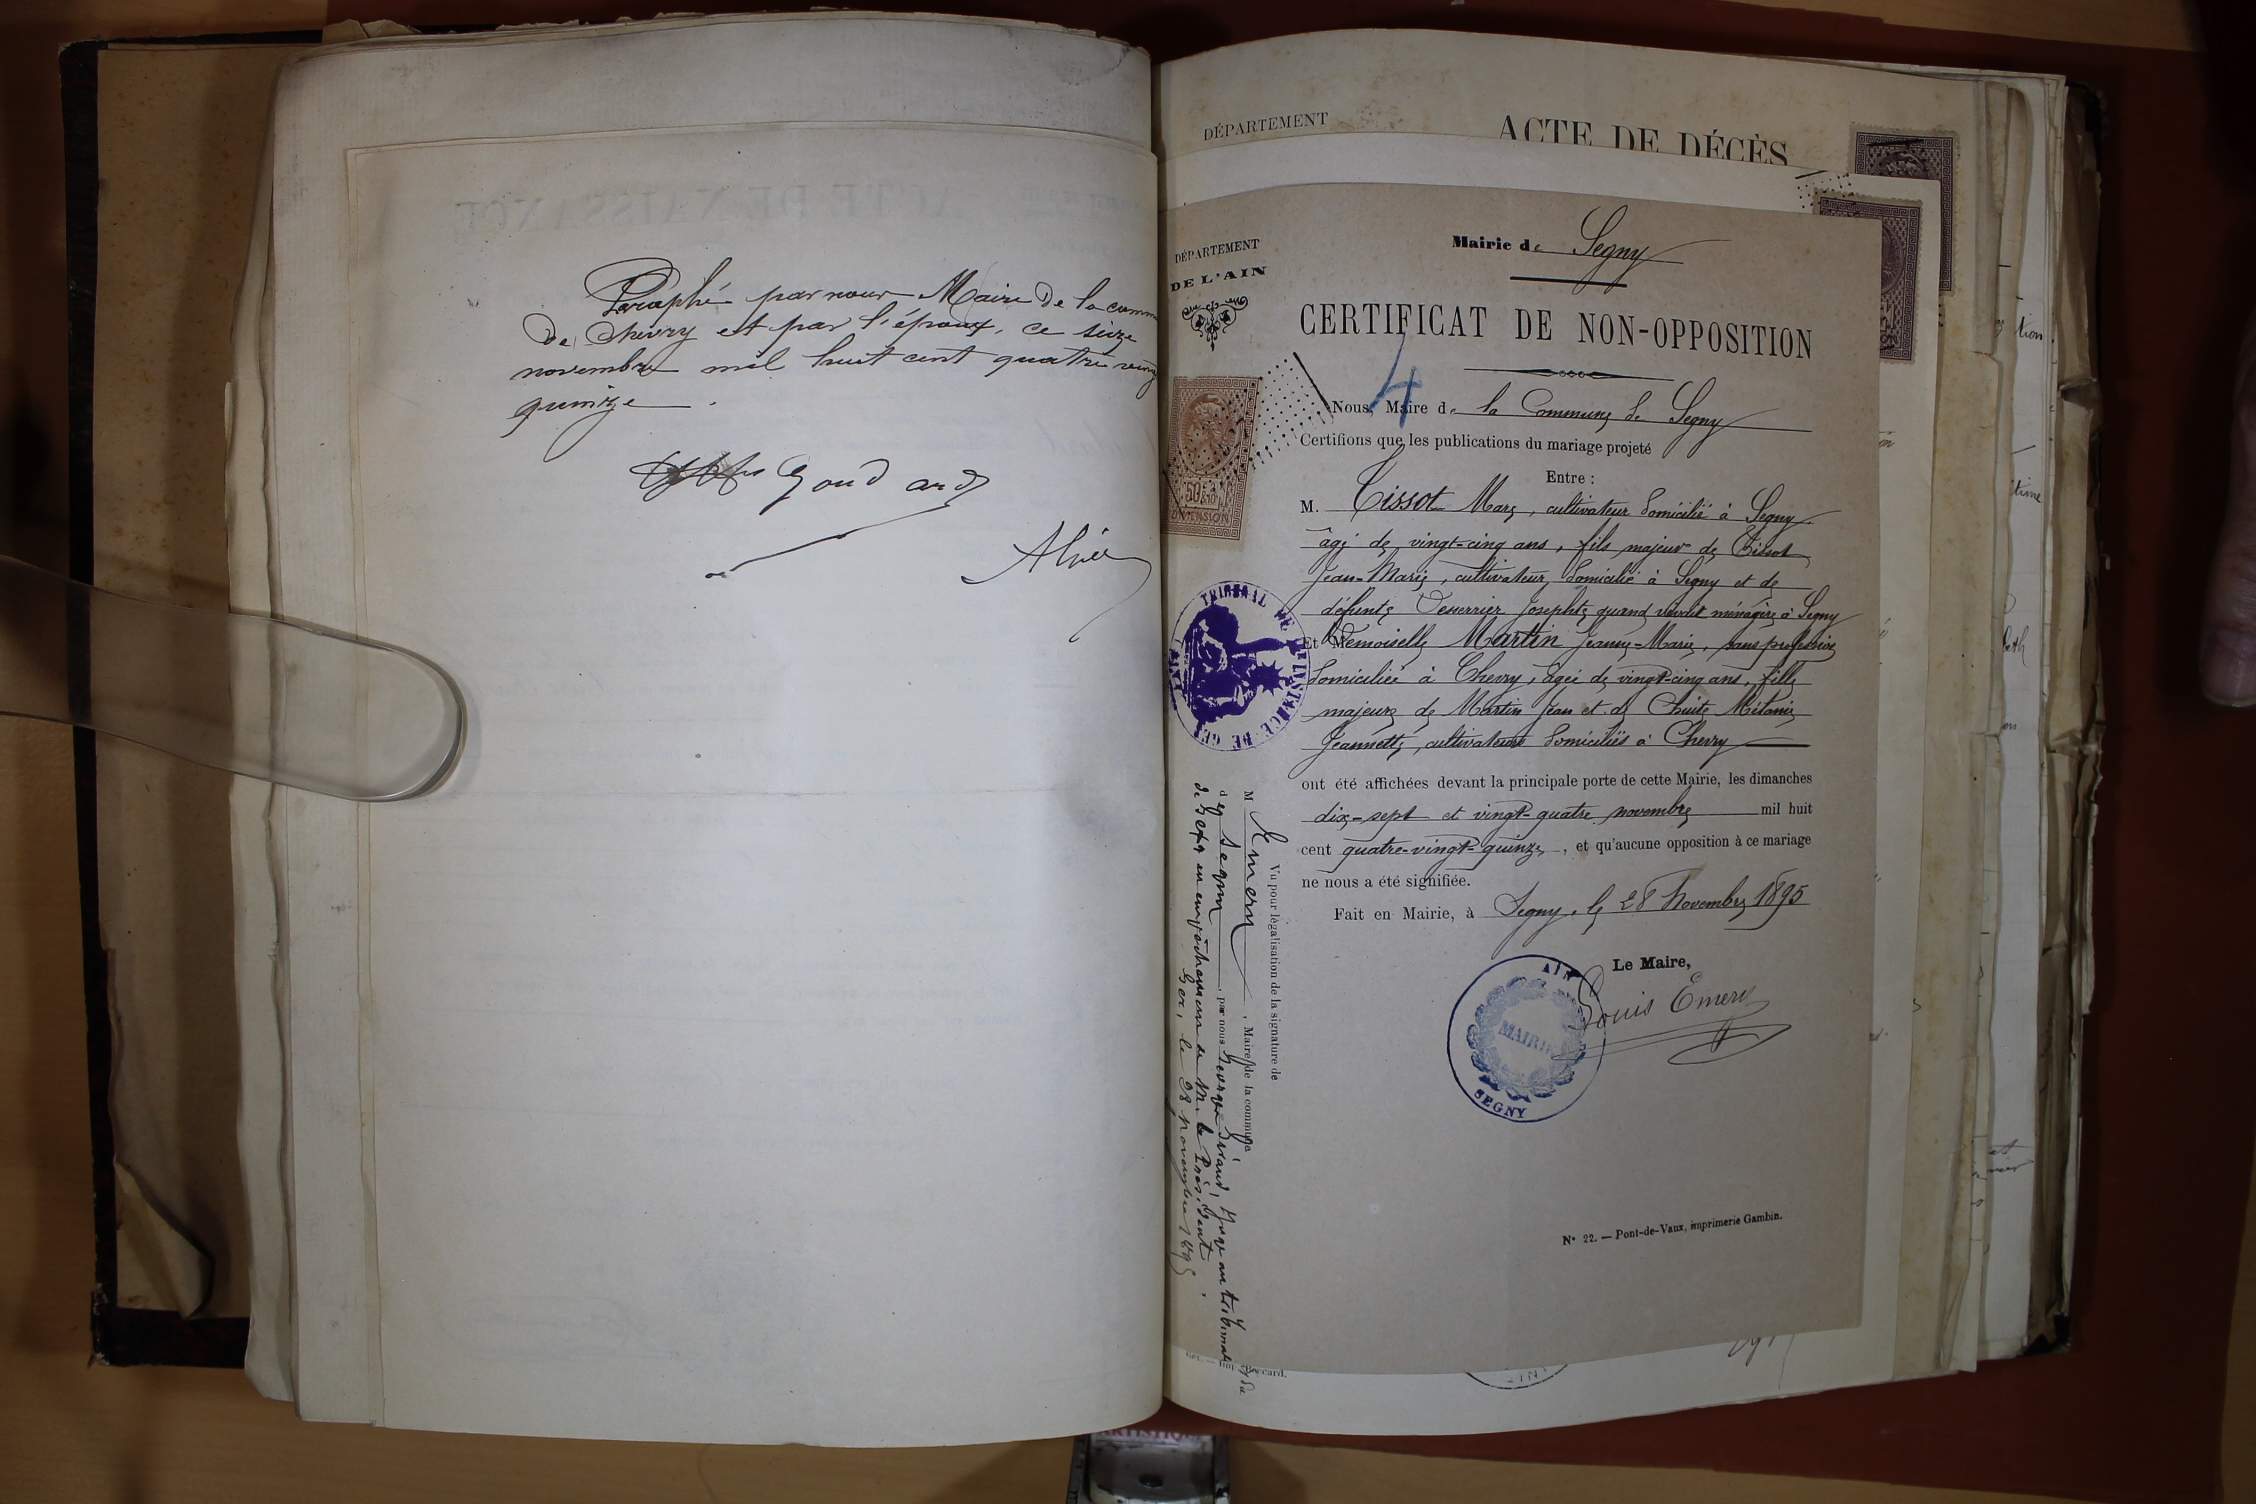 Paraphé par nous Maire de la comm
de Chevry et par l'époux, ce seize
novembre mil huit cent quatre ving
quinze.
Goudard
DÉPARTEMENT
ACTE DE DÉCÈS
DÉPARTEMENT
DE L'AIN
Mairie de Segny
CERTIFICAT DE NON-OPPOSITION
4
Nous, Maire de la Commune de Segny
Certifions que les publications du mariage projeté
Entre :
M. Tissot Marc, cultivateur domicilié à Segny
âgé de vingt-cinq ans, fils majeur de Tissot
Jean-Marie, cultivateur, domicilié à Segny et de
défunte Josephte quand vivait ménagère à Segny
Et Demoiselle Martin Jeanne-Marie, sans profession
domiciliée à Chevry, âgée de vingt-cinq ans, fille
majeure de Martin Jean et de Chuite Mélanie
Jeannette, cultivateurs domiciliés à Chevry
ont été affichées devant la principale porte de cette Mairie, les dimanches
dix-sept et vingt-quatre novembre mil huit
cent quatre-vingt-quinze, et qu'aucune opposition à ce mariage
ne nous a été signifiée.
Fait en Mairie, à Segny, le 28 Novembre 1895
Le Maire,
Louis Emery
AIN
MAIRIE
SEGNY
N° 22. — Pont-de-Vaux, imprimerie Gambin.
50
DIMENSION
TRIBUNAL DE 1RE INSTANCE DE GEX
Vu pour légalisation de la signature de
M Emery, Maire de la commune
de Segny, par nous George Girand, Juge au tribunal
de Gex, en empêchement de M. le Président
Gex, le 28 novembre 1895